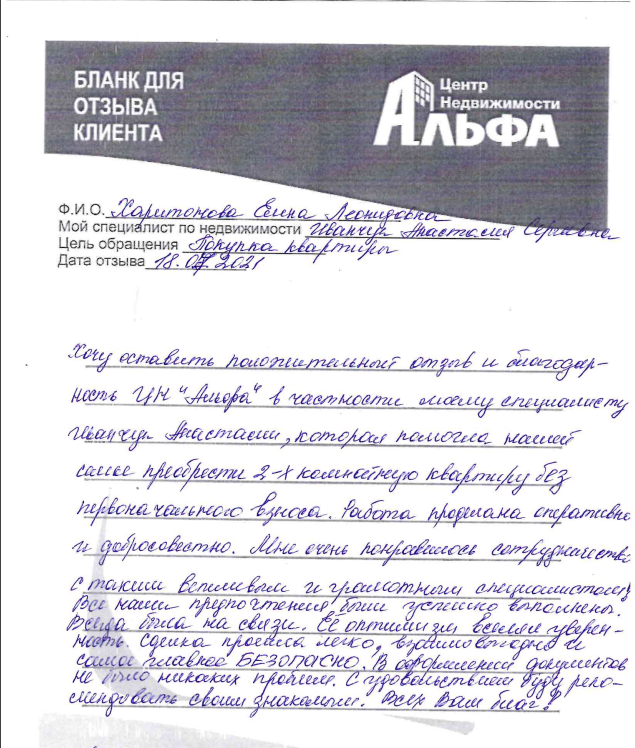 БЛАНК ДЛЯ
ОТЗЫВА
КЛИЕНТА
Центр
Недвижимости
АЛЬФА
Ф.И.О. Харитонова Елена Леонидовна
Мой специалист по недвижимости Иванчук Анастасия Сергеевна
Цель обращения Покупка квартиры
Дата отзыва 18.07.2021
Хочу оставить положительный отзыв и благодар-
ность ЦН "Альфа" в частности моему специалисту
Иванчук Анастасии, которая помогла нашей
семье преобрести 2-х комнатную квартиру без
первоначального взноса. Работа проделана оперативно
и добросовестно. Мне очень понравилось сотрудничество
с таким вежливым и грамотным специалистом,
Все наши предпочтения были успешно выполнены.
Всегда была на связи. Её оптимизм вселял уверен-
ность. Сделка прошла легко, взаимовыгодно и
самое главное БЕЗОПАСНО. В оформлении документов
не было никаких проблем. С удовольствием буду реко-
мендовать своим знакомым. Всех Вам благ!